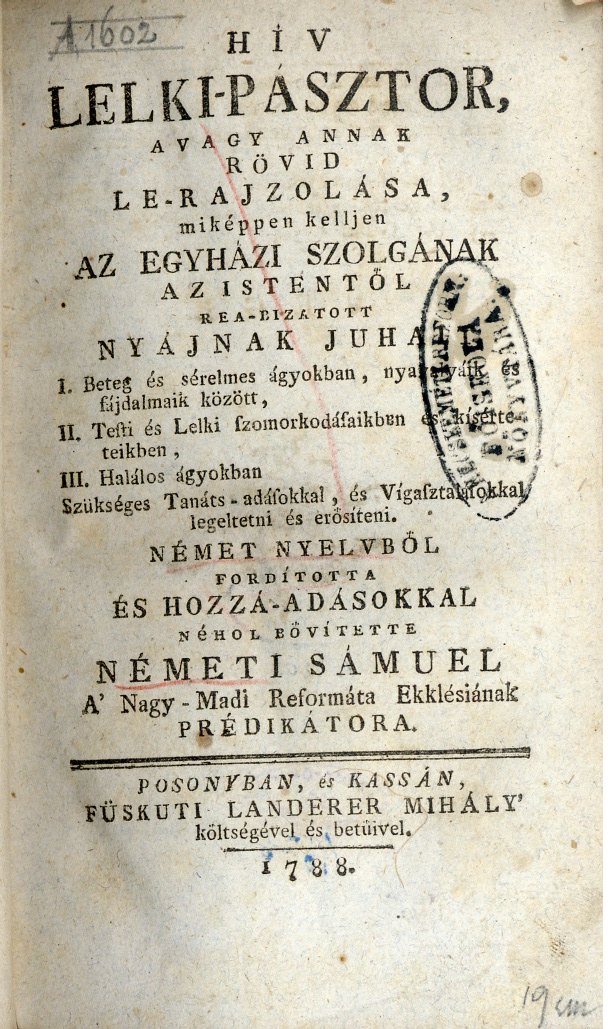 A1602
HÍV
LELKI-PÁSZTOR,
AVAGY ANNAK
RÖVID
LE-RAJZOLÁSA,
miképpen kelljen
AZ EGYHÁZI SZOLGÁNAK
AZ ISTENTŐL
REA-BIZATOTT
NYÁJNAK
I. Beteg és sérelmes ágyokban, és
fájdalmaik között,
II. Teſti és Lelki ſzomorkodáſaikban és kísérte-
teikben,
III. Halálos ágyokban
Szükséges Tanáts-adáſokkal, és Vígaſztaláſokkal
legeltetni és erősíteni.
NÉMET NYELVBŐL
FORDÍTOTTA
ÉS HOZZÁ-ADÁSOKKAL
NÉHOL BŐVÍTETTE
NÉMETI SÁMUEL
A' Nagy-Madi Reformáta Ekklésiának
PRÉDIKÁTORA.
POSONYBAN, és KASSÁN,
FÜSKUTI LANDERER MIHÁLY'
költségével és betüivel.
1788.
19 cm